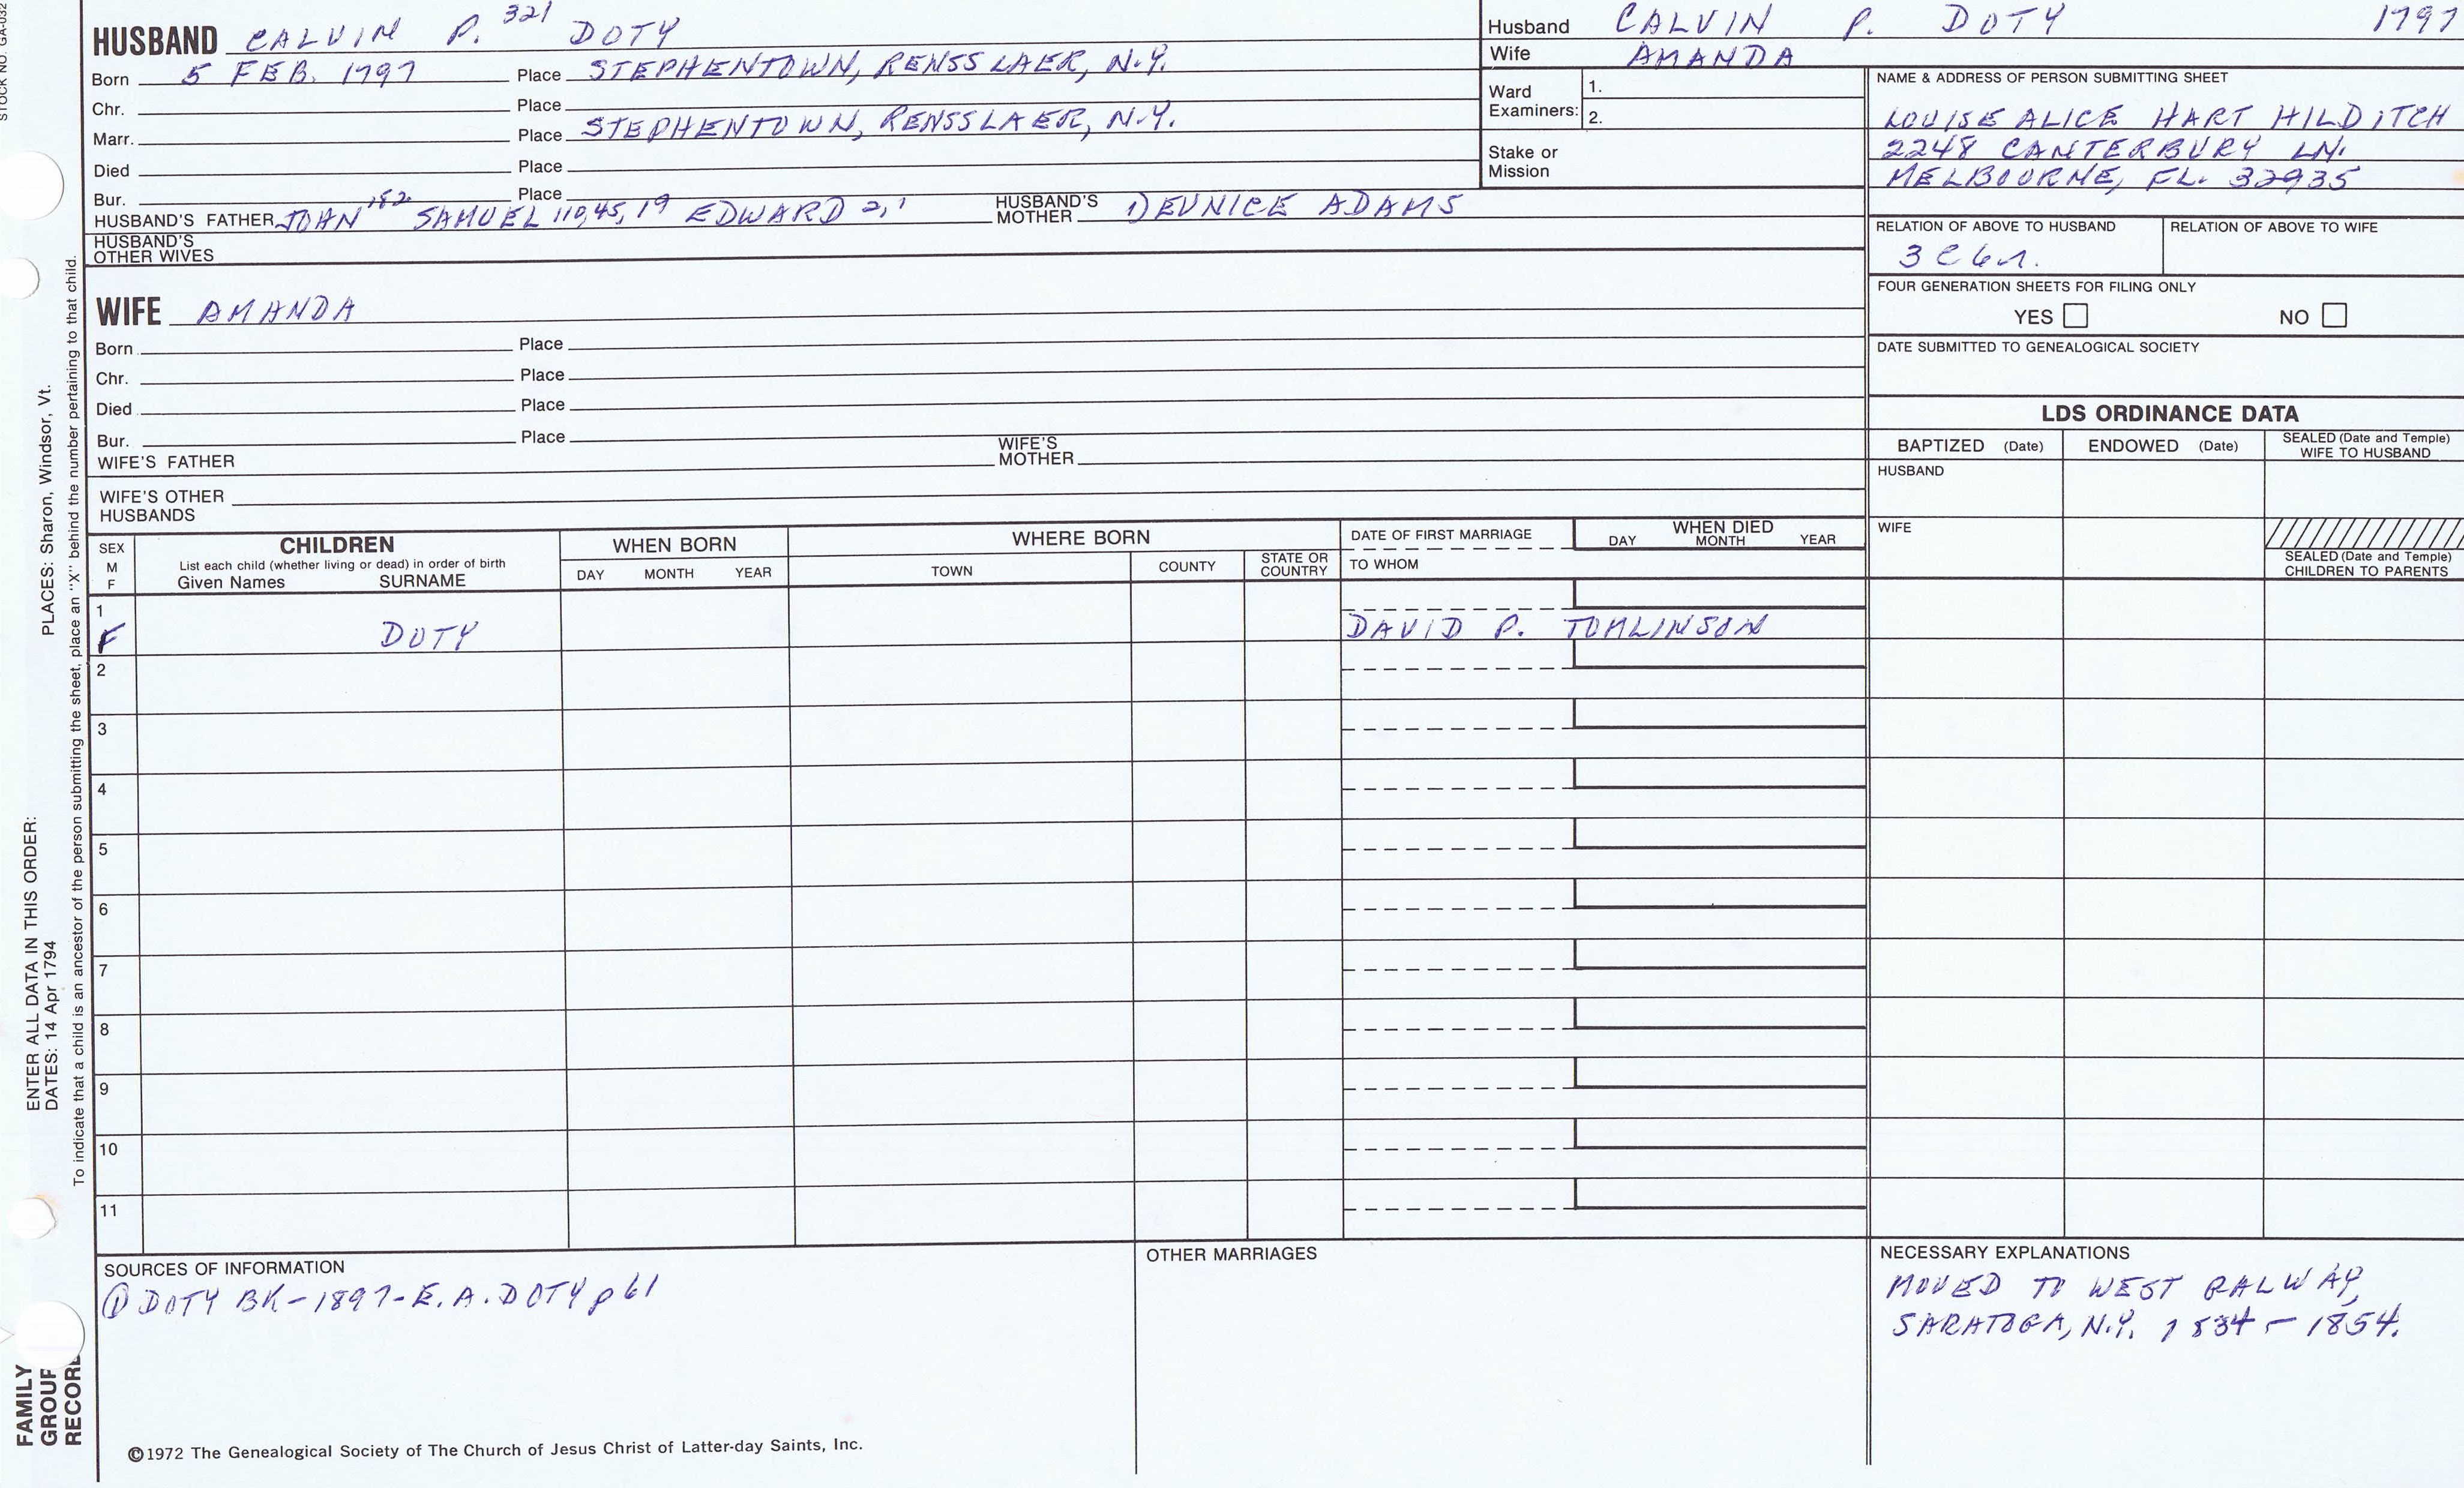 STOCK NO. GA-032
HUSBAND CALVIN P. 321 DOTY
Born 5 FEB. 1797 Place STEPHENTOWN, RENSSLAER, N.Y.
Chr. Place
Marr. Place STEPHENTOWN, RENSSLAER, N.Y.
Died Place
Bur. Place
HUSBAND'S FATHER JOHN 182 SAMUEL 110,45,19 EDWARD 2,1 HUSBAND'S MOTHER 1) EUNICE ADAMS
HUSBAND'S
OTHER WIVES
Husband CALVIN P. DOTY 1797
Wife AMANDA
Ward
Examiners:
1.
2.
Stake or
Mission
NAME & ADDRESS OF PERSON SUBMITTING SHEET
LOUISE ALICE HART HILDITCH
2248 CANTERBURY LN.
MELBOURNE, FL. 32935
RELATION OF ABOVE TO HUSBAND
3C6r.
RELATION OF ABOVE TO WIFE
FOUR GENERATION SHEETS FOR FILING ONLY
YES NO
DATE SUBMITTED TO GENEALOGICAL SOCIETY
WIFE AMANDA
Born Place
Chr. Place
Died Place
Bur. Place
WIFE'S FATHER WIFE'S MOTHER
WIFE'S OTHER
HUSBANDS
LDS ORDINANCE DATA
BAPTIZED (Date) ENDOWED (Date) SEALED (Date and Temple) WIFE TO HUSBAND
HUSBAND
WIFE
SEALED (Date and Temple)
CHILDREN TO PARENTS
SEX
M
F
CHILDREN
List each child (whether living or dead) in order of birth
Given Names SURNAME
WHEN BORN
DAY MONTH YEAR
WHERE BORN
TOWN COUNTY STATE OR COUNTRY
DATE OF FIRST MARRIAGE
TO WHOM
WHEN DIED
DAY MONTH YEAR
1
F DOTY DAVID P. TOMLINSON
2
3
4
5
6
7
8
9
10
11
SOURCES OF INFORMATION
① DOTY BK-1897-E.A.DOTY p61
OTHER MARRIAGES
NECESSARY EXPLANATIONS
MOVED TO WEST GALWAY,
SARATOGA, N.Y. 1834-1854.
©1972 The Genealogical Society of The Church of Jesus Christ of Latter-day Saints, Inc.
FAMILY
GROUP
RECORD
ENTER ALL DATA IN THIS ORDER:
DATES: 14 Apr 1794
PLACES: Sharon, Windsor, Vt.
To indicate that a child is an ancestor of the person submitting the sheet, place an "X" behind the number pertaining to that child.